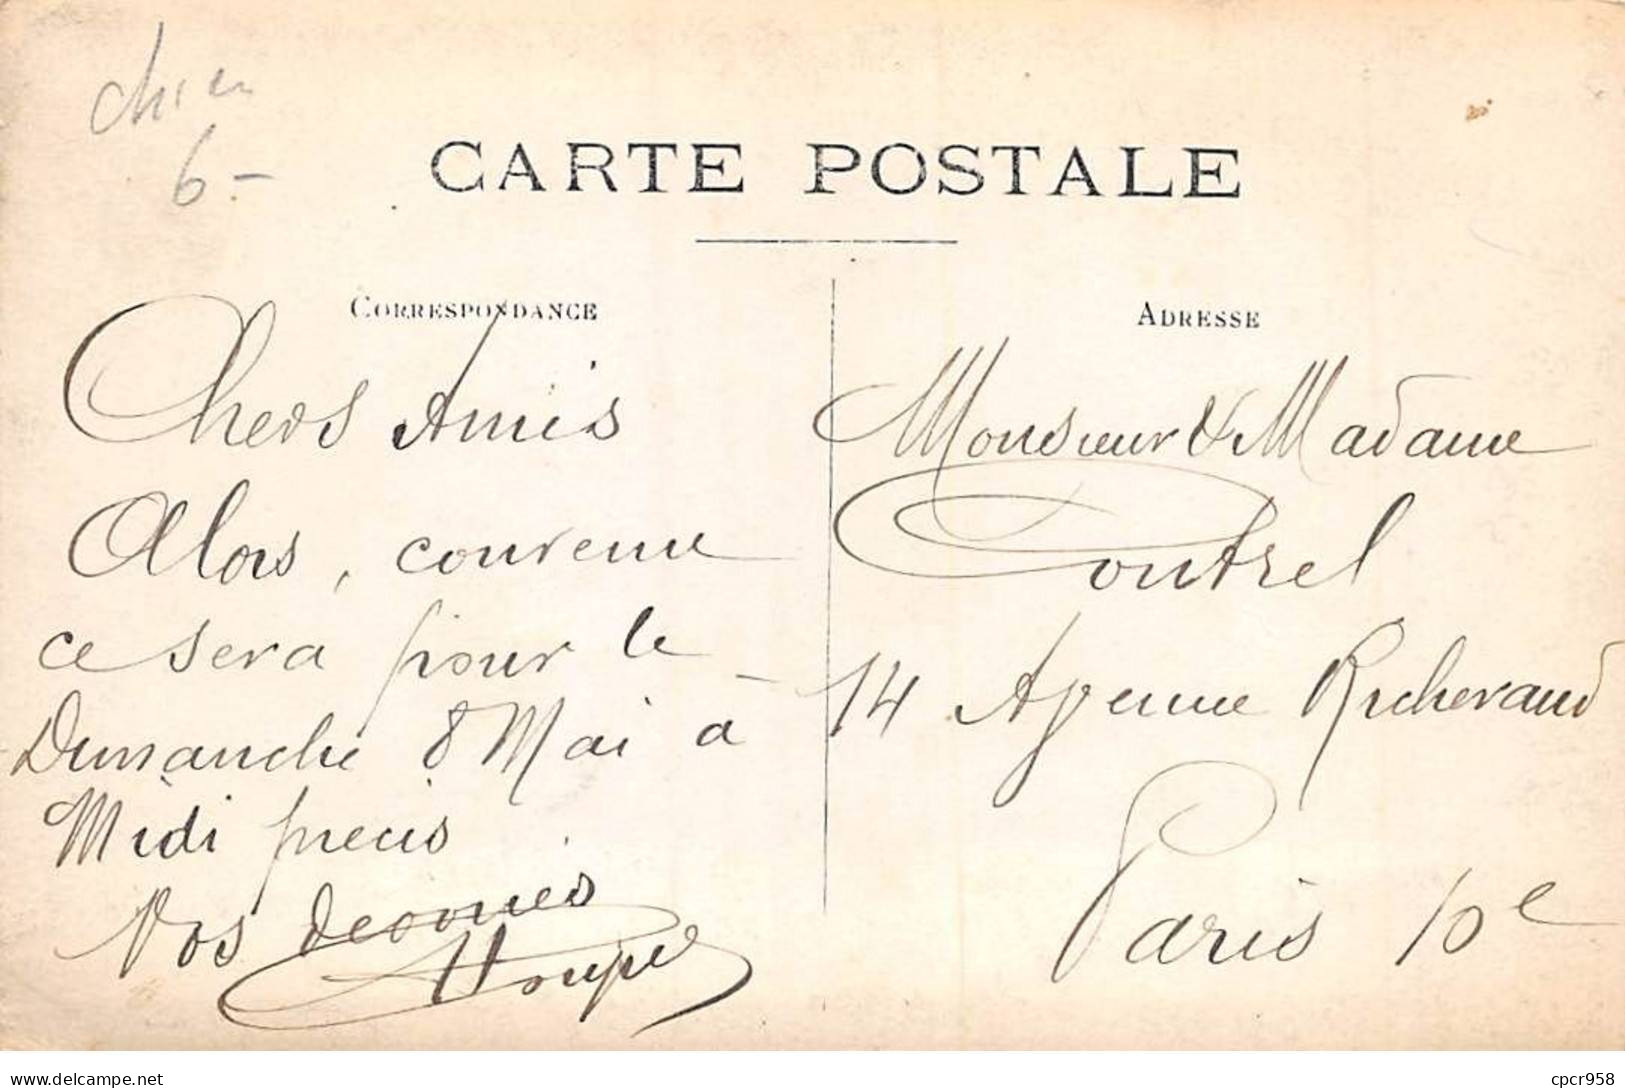 chien
6-
CARTE POSTALE
CORRESPONDANCE
Chers Amis
Alors, convenu
ce sera pour le
Dimanche 8 Mai à
Midi précis
Vos
ADRESSE
Monsieur & Madame
Contrel
14 Avenue Richerand
Paris 10e
delcampe.net
cpcr958